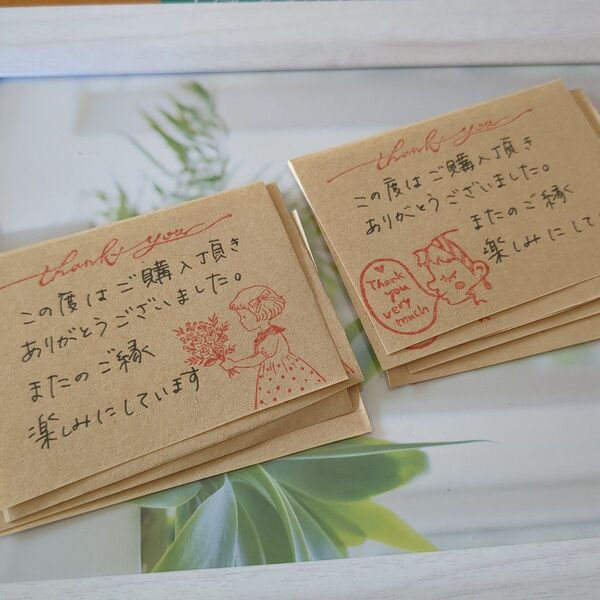 thank you
この度はご購入頂き
ありがとうございました。
またのご縁
楽しみにしています
thank you
この度はご購入頂き
ありがとうございました。
またのご縁
楽しみにしてい
Thank
you
very
much